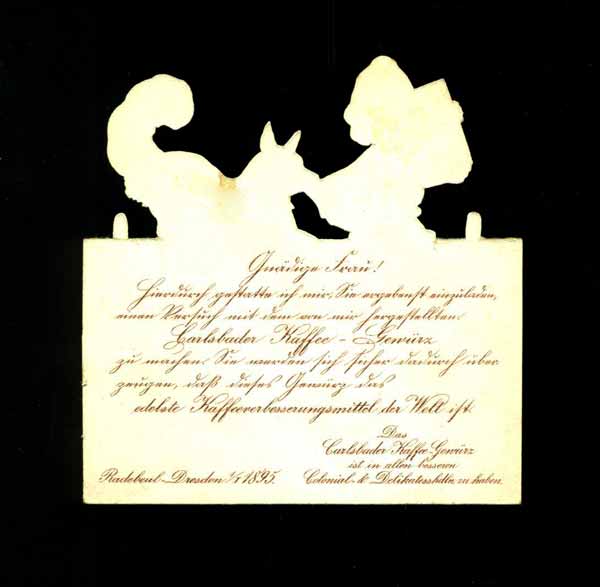 Gnädige Frau!
Hierdurch gestatte ich mir, Sie ergebenst einzuladen,
einen Versuch mit dem von mir hergestellten
Carlsbader Kaffee-Gewürz
zu machen. Sie werden sich sicher dadurch über
zeugen, daß dieses Gewürz das
edelste Kaffeeverbesserungsmittel der Welt ist.
Das
Carlsbader Kaffee-Gewürz
ist in allen besseren
Radebeul-Dresden 1/1 1895. Colonial- & Delikatesshdlg. zu haben.